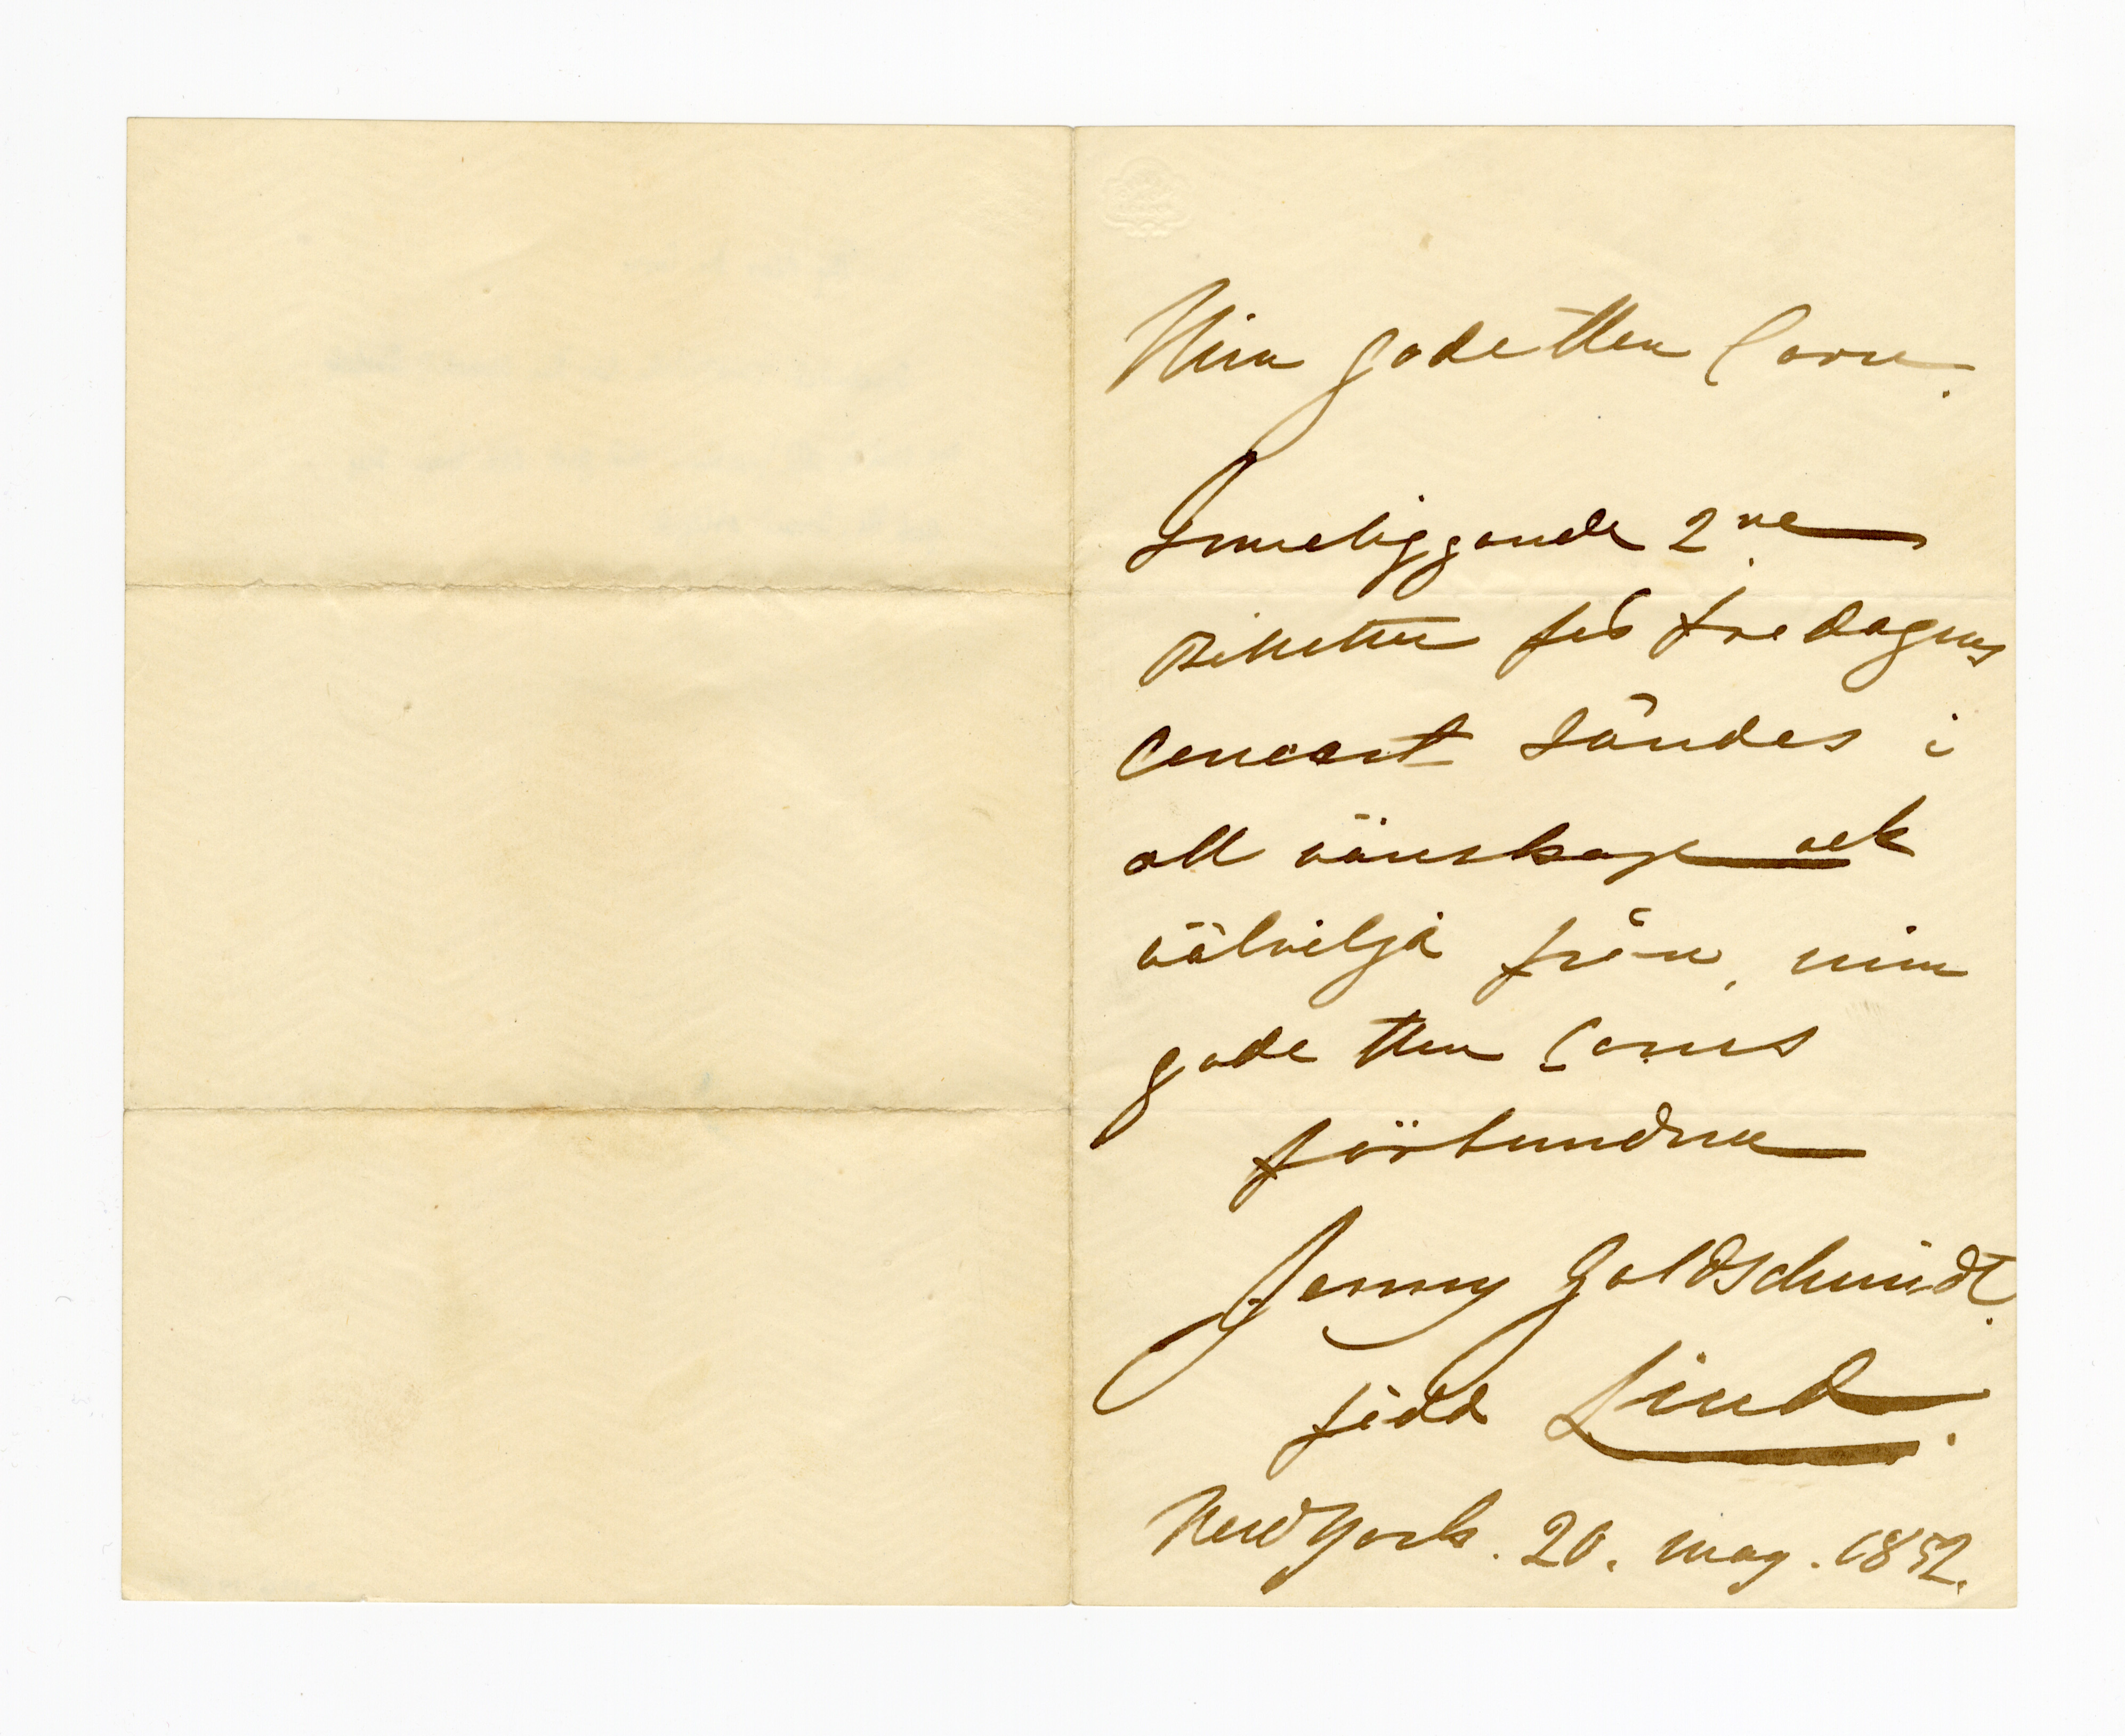 Min gode Herr
Inneliggande 2ne
Billetter för fredagens
Concert sändes i
all vänskap och
välvilja från, min
gode Herr
förbundna
Jenny Goldschmidt.
född Lind.
New York. 20. may. 1852.